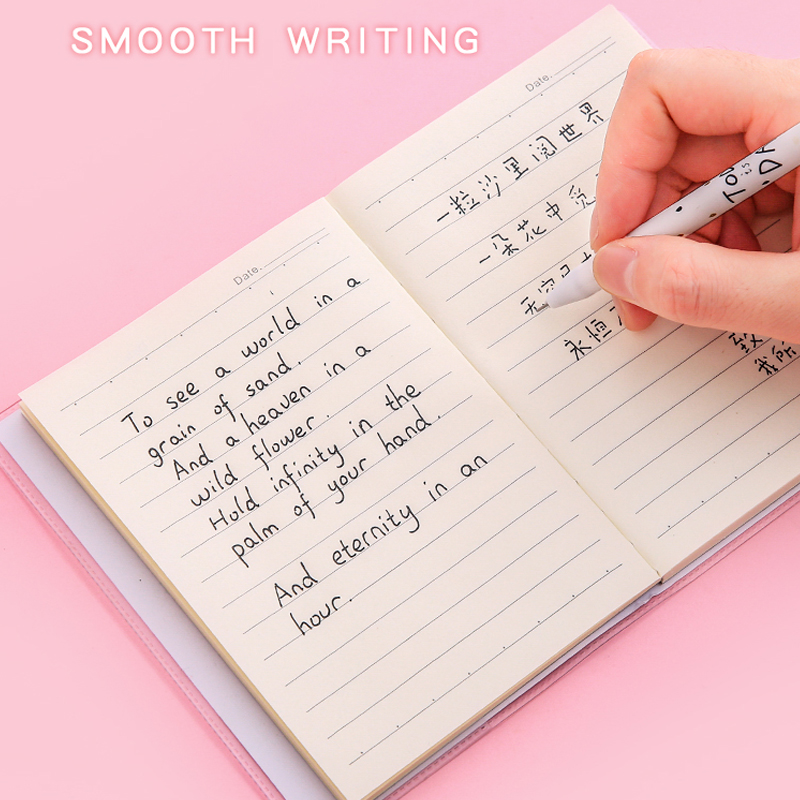 SMOOTH WRITING
Date.
To see a world in a
grain of sand.
And a heaven in a
wild flower.
Hold infinity in the
palm of your hand.
And eternity in an
hour.
Date.
一粒沙里阅世界
一朵花中览
无穷
永恒
致
我所
TO
DA